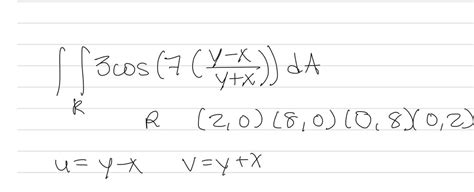 ∫∫_R 3cos(7(y-x/y+x)) dA
R (2,0)(8,0)(0,8)(0,2)
u=y-x v=y+x